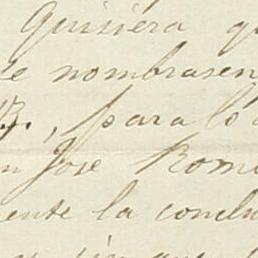 Quisiera q
e nombrasen
B., para lo
n José Rom
ente la conclu